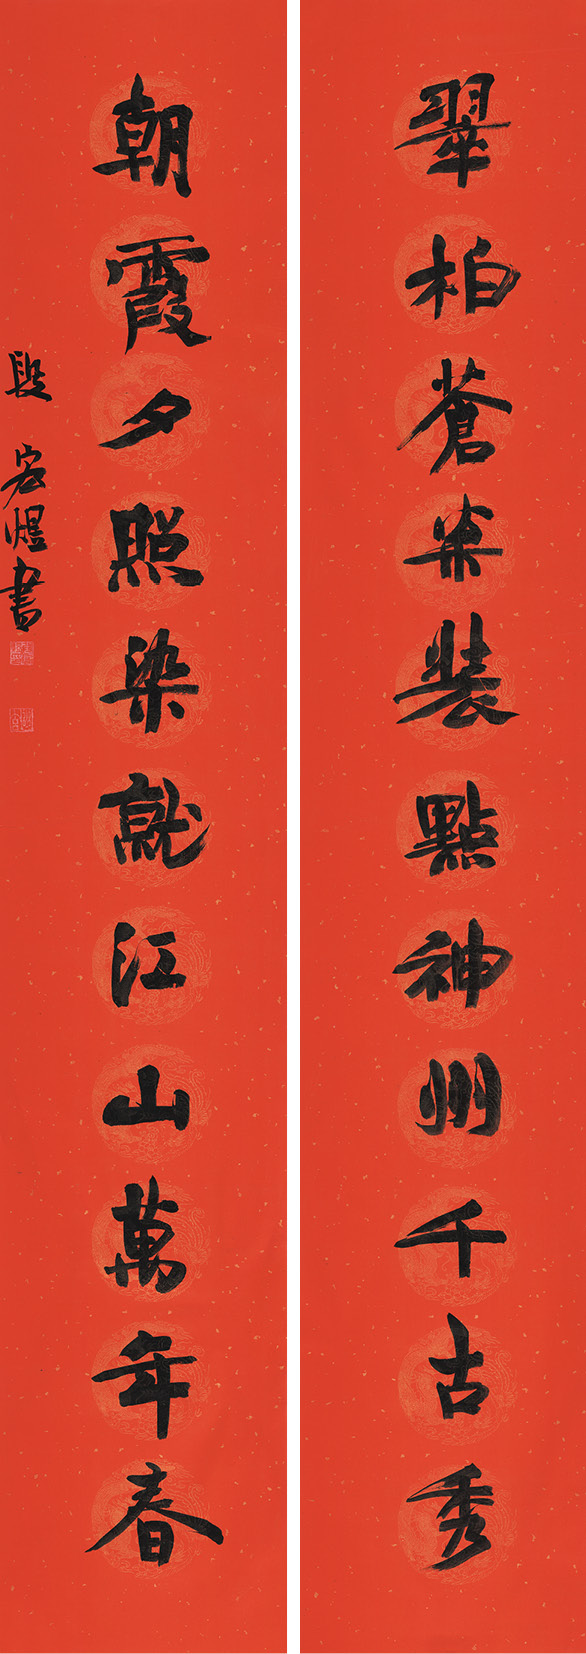 翠柏蒼桑裝點神州千古秀
朝霞夕照染就江山萬年春
段宏煜書